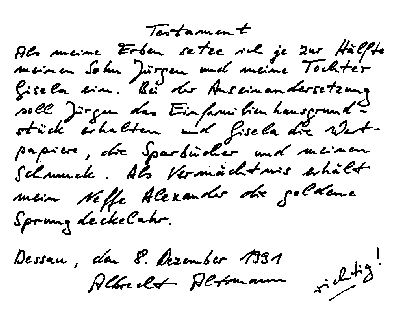 Testament
Als meine Erben setze ich je zur Hälfte
meinen Sohn Jürgen und meine Tochter
Gisela ein. Bei der Auseinandersetzung
soll Jürgen das Einfamilienhausgrund-
stück erhalten und Gisela die Wert-
papiere, die Sparbücher und meinen
Schmuck. Als Vermächtnis erhält
mein Neffe Alexander die goldene
Sprungdeckeluhr.
Dessau, den 8. Dezember 1991
Albrecht Altmann
richtig!